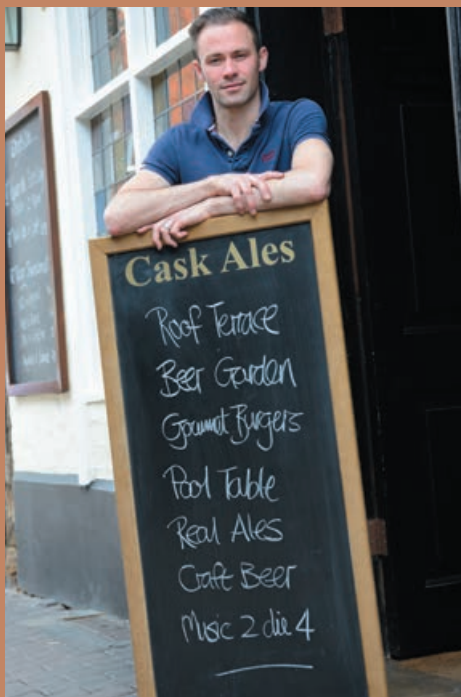 Cask Ales
Roof Terrace
Beer Garden
Gourmet Burgers
Pool Table
Real Ales
Craft Beer
Music 2 die 4